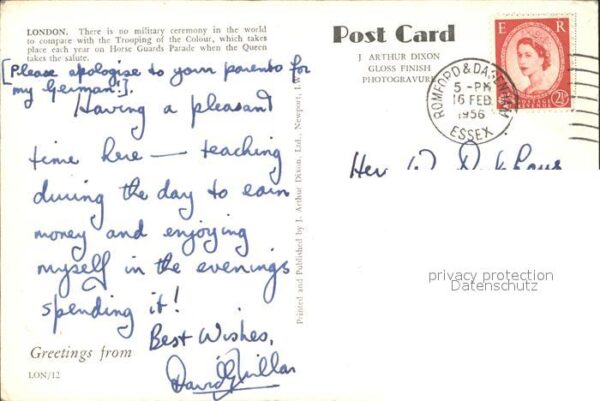 LONDON. There is no military ceremony in the world
to compare with the Trooping of the Colour, which takes
place each year on Horse Guards Parade when the Queen
takes the salute.
[Please apologise to your parents for
my German!].
Having a pleasant
time here — teaching
during the day to earn
money and enjoying
myself in the evenings
spending it!
Best Wishes,
David
Greetings from
LON/12
Printed and Published by J. Arthur Dixon, Ltd., Newport, I.W.
Post Card
J ARTHUR DIXON
GLOSS FINISH
PHOTOGRAVURE
E R
POSTAGE REVENUE
2½D
ROMFORD & DAGENHAM
5 - PM
16 FEB
1956
ESSEX
privacy protection
Datenschutz